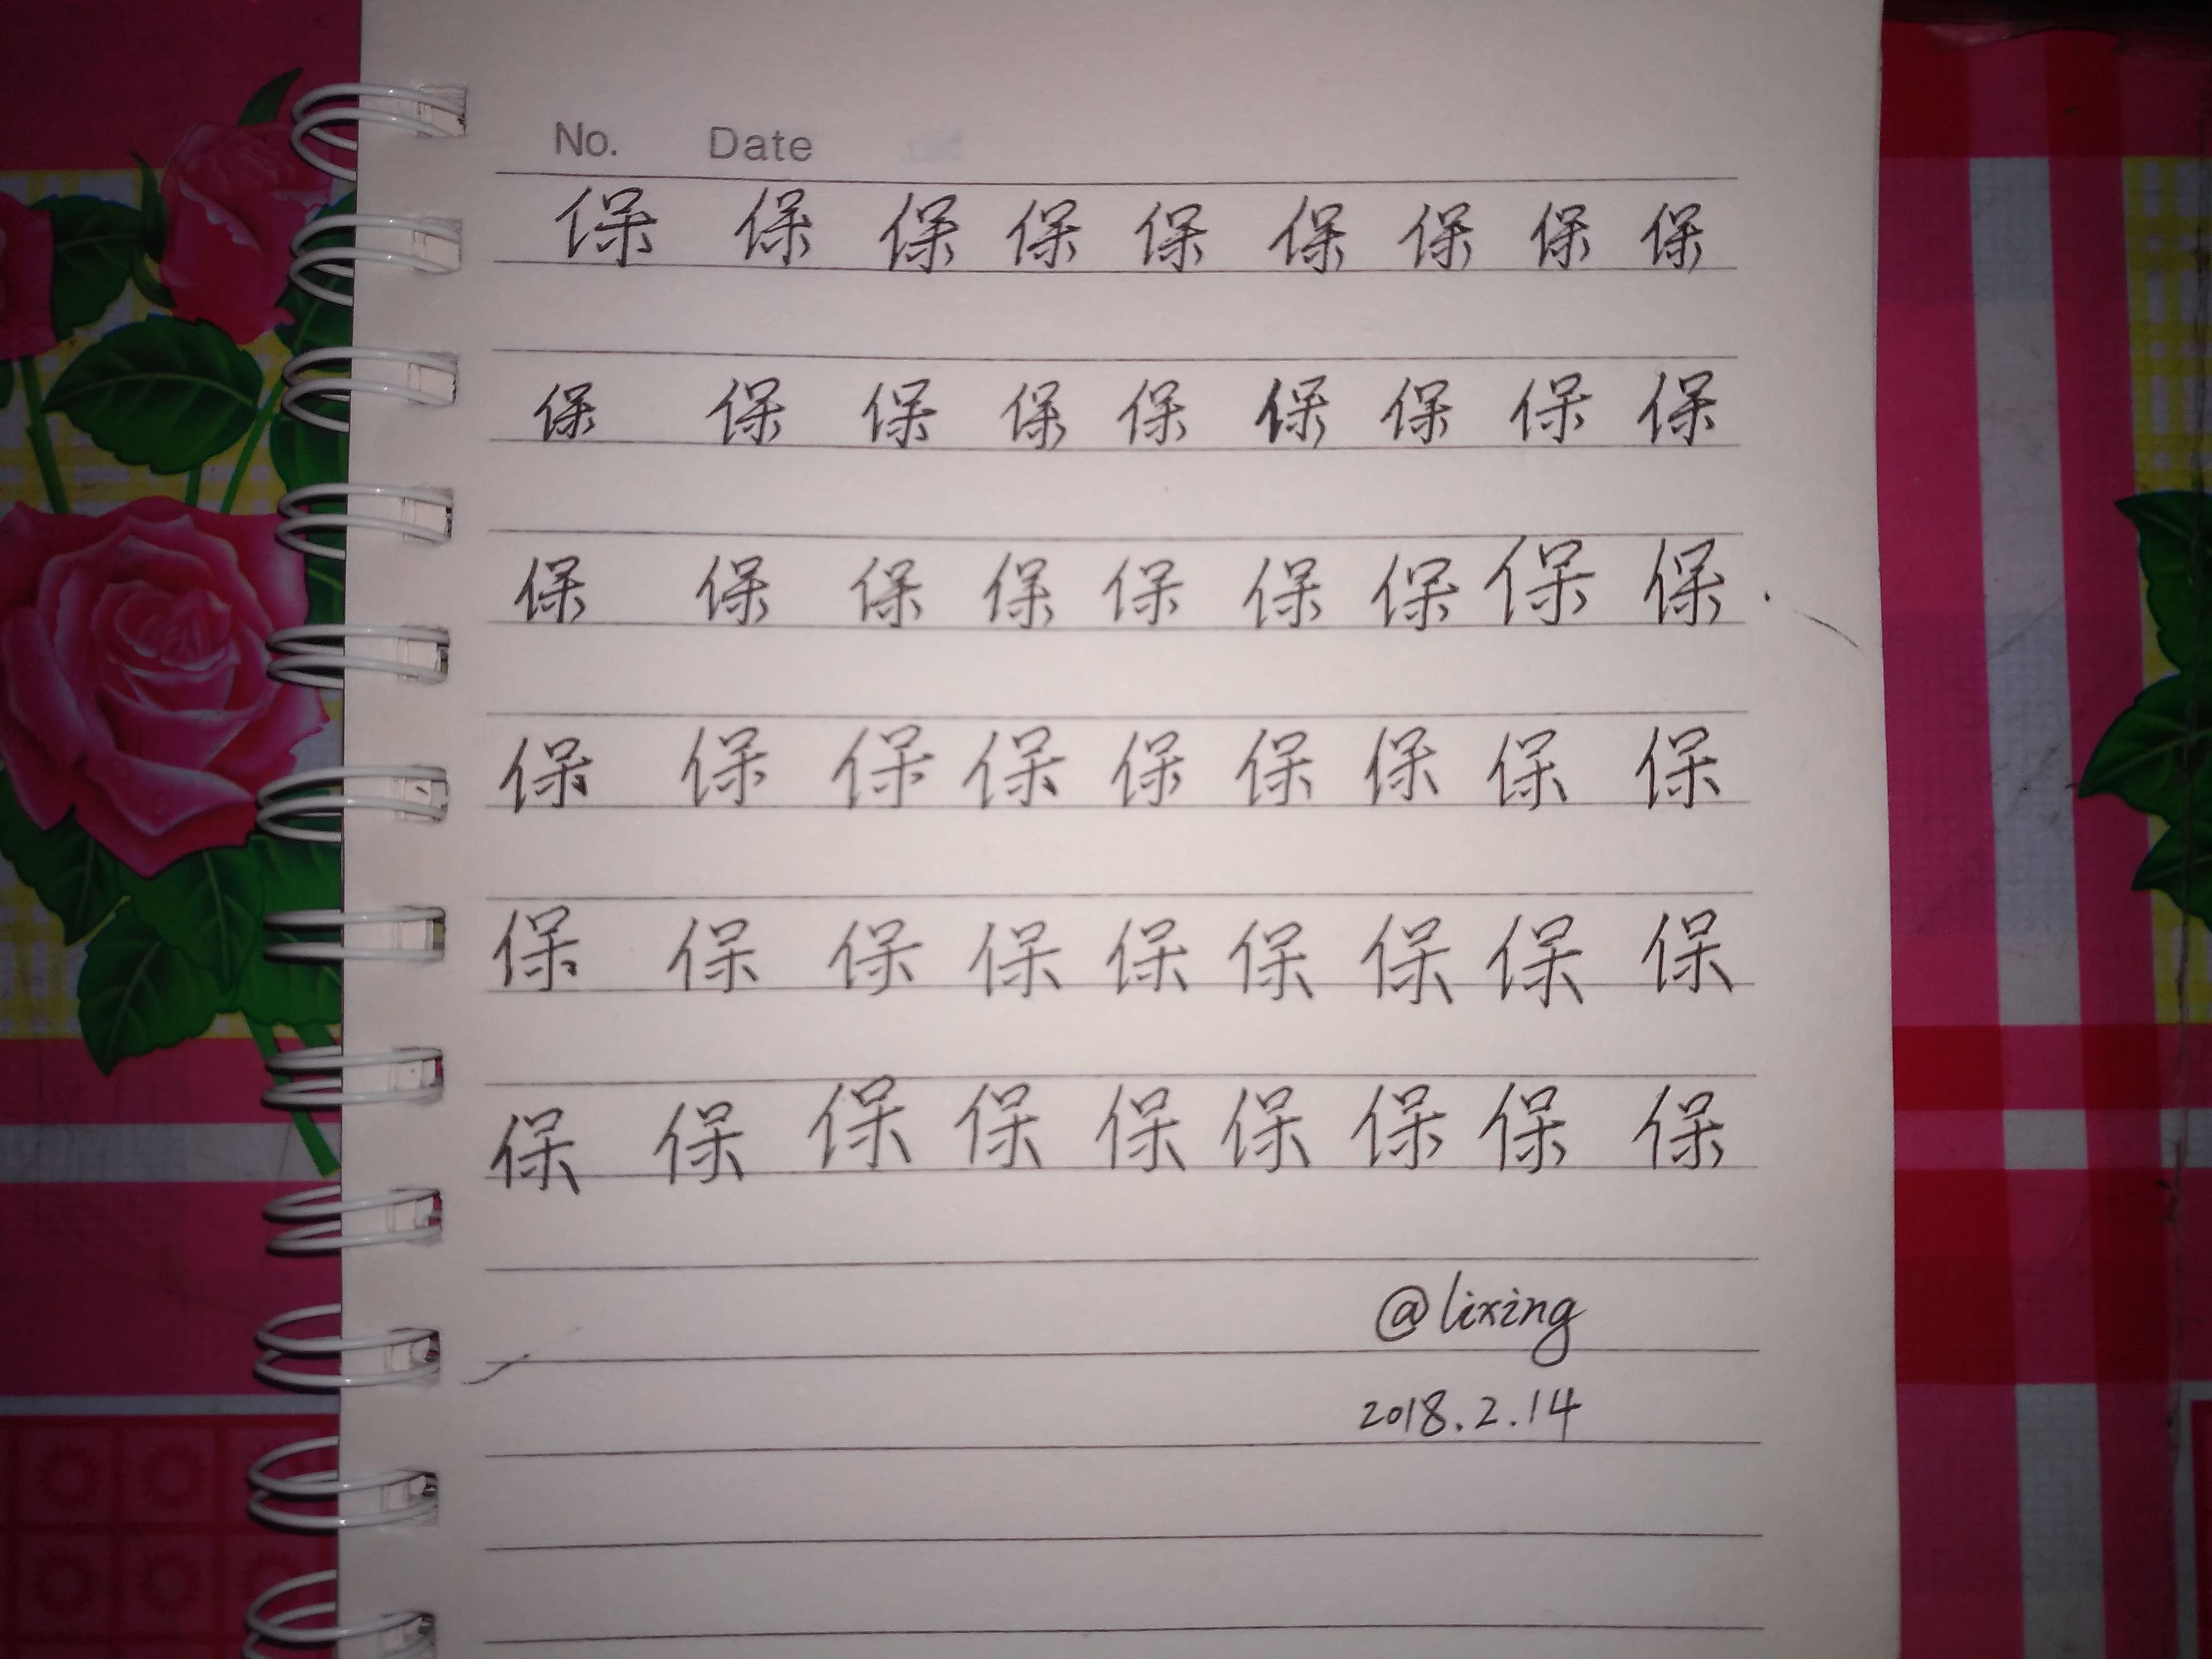 No. Date
保 保 保 保 保 保 保 保 保
保 保 保 保 保 保 保 保 保
保 保 保 保 保 保 保 保 保
保 保 保 保 保 保 保 保 保
保 保 保 保 保 保 保 保 保
保 保 保 保 保 保 保 保 保
@lixing
2018.2.14